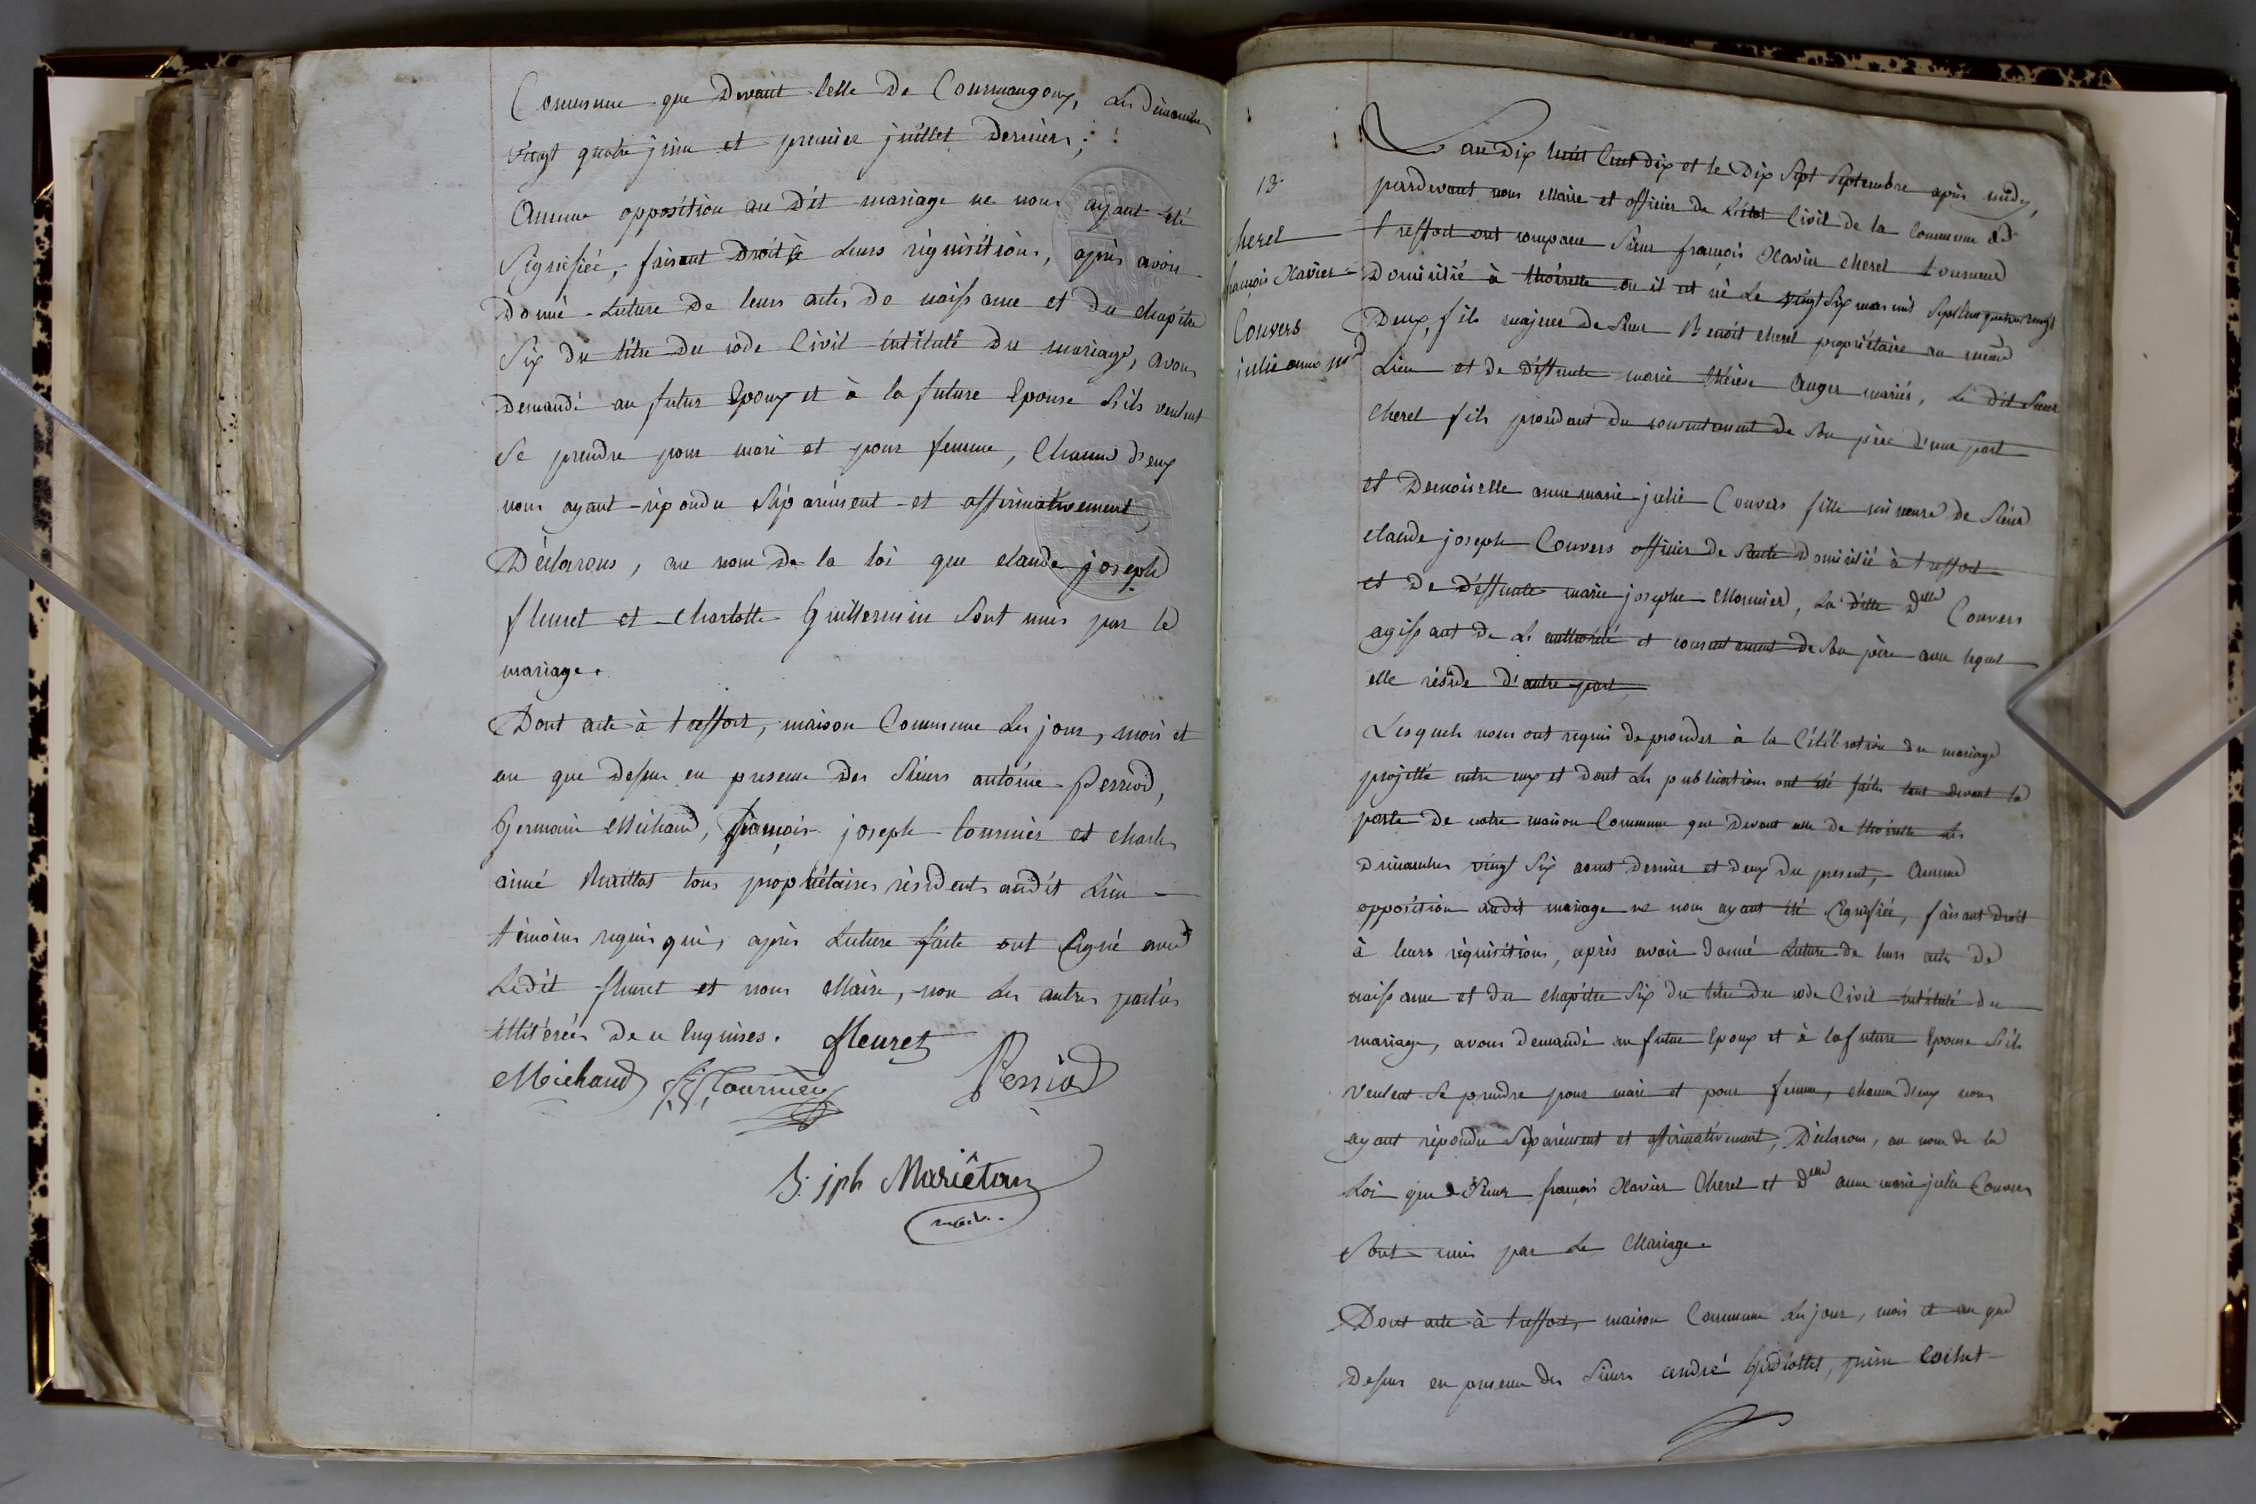 Commune que devant celle de Courmangoux, les dimanches
vingt quatre juin et premier juillet derniers;
Aucune opposition au dit mariage ne nous ayant été
signifiée, faisant droit à leurs réquisitions, après avoir
donné lecture de leurs actes de naissance et du chapitre
six du titre du code Civil intitulé du mariage, avons
demandé au futur Epoux et à la future Epouse s'ils veulent
se prendre pour mari et pour femme, chacun d'eux
nous ayant répondu séparément et affirmativement,
Déclarons, au nom de la loi que claude joseph
fleuret et charlotte Guillermin sont unis par le
mariage.
Dont acte à treffort, maison Commune les jour, mois et
an que dessus en presence des sieurs antoine Perriod,
Germain Michaud, françois joseph tournier et charles
aimé tous propriétaires résidents audit lieu
témoins requis qui, après lecture faite ont signé avec
ledit fleuret et nous Maire, non les autres parties
illitérées de ce enquises. fleuret
Michaud fJ Tournier Perriod
B. jph Mariéton
maire
13
Cheret
françois Xavier
Convers
julie anne Mie
L'an dix huit Cent dix et le dix sept septembre après midy,
pardevant nous Maire et officier de l'état Civil de la Commune de
treffort ont comparu sieur françois Xavier cheret tourneur
domicilié à thoirette où il est né le vingt six mars mil sept cent quatre vingt
Deux, fils majeur de sieur Benoit cheret propriétaire au même
lieu et de deffunte marie thérèse Auger mariés, le dit sieur
cheret fils procédant du consentement de son père d'une part
et Demoiselle anne marie julie Convers fille mineure de sieur
claude joseph Convers officier de santé domicilié à treffort
et de deffunte marie josephe Monnier, la ditte Dlle Convers
agissant de l'authorité et consentement de son père avec lequel
elle réside d'autre part
Lesquels nous ont requis de procéder à la Célébration du mariage
projetté entre eux et dont les publications ont été faites tant devant la
porte de notre maison Commune que devant celle de thoirette les
dimanches vingt six aout dernier et deux du present, Aucune
opposition audit mariage ne nous ayant été signifiée, faisant droit
à leurs réquisitions, après avoir donné lecture de leurs actes de
naissance et du chapitre six du titre du code Civil intitulé du
mariage, avons demandé au futur Epoux et à la future Epouse s'ils
veulent se prendre pour mari et pour femme, chacun d'eux nous
ayant répondu séparément et affirmativement, Déclarons, au nom de la
loi que sieur françois Xavier Cheret et Dlle anne marie julie Convers
sont unis par le Mariage.
Dont acte à treffort, maison Commune les jour, mois et an que
dessus en presence des sieurs andré